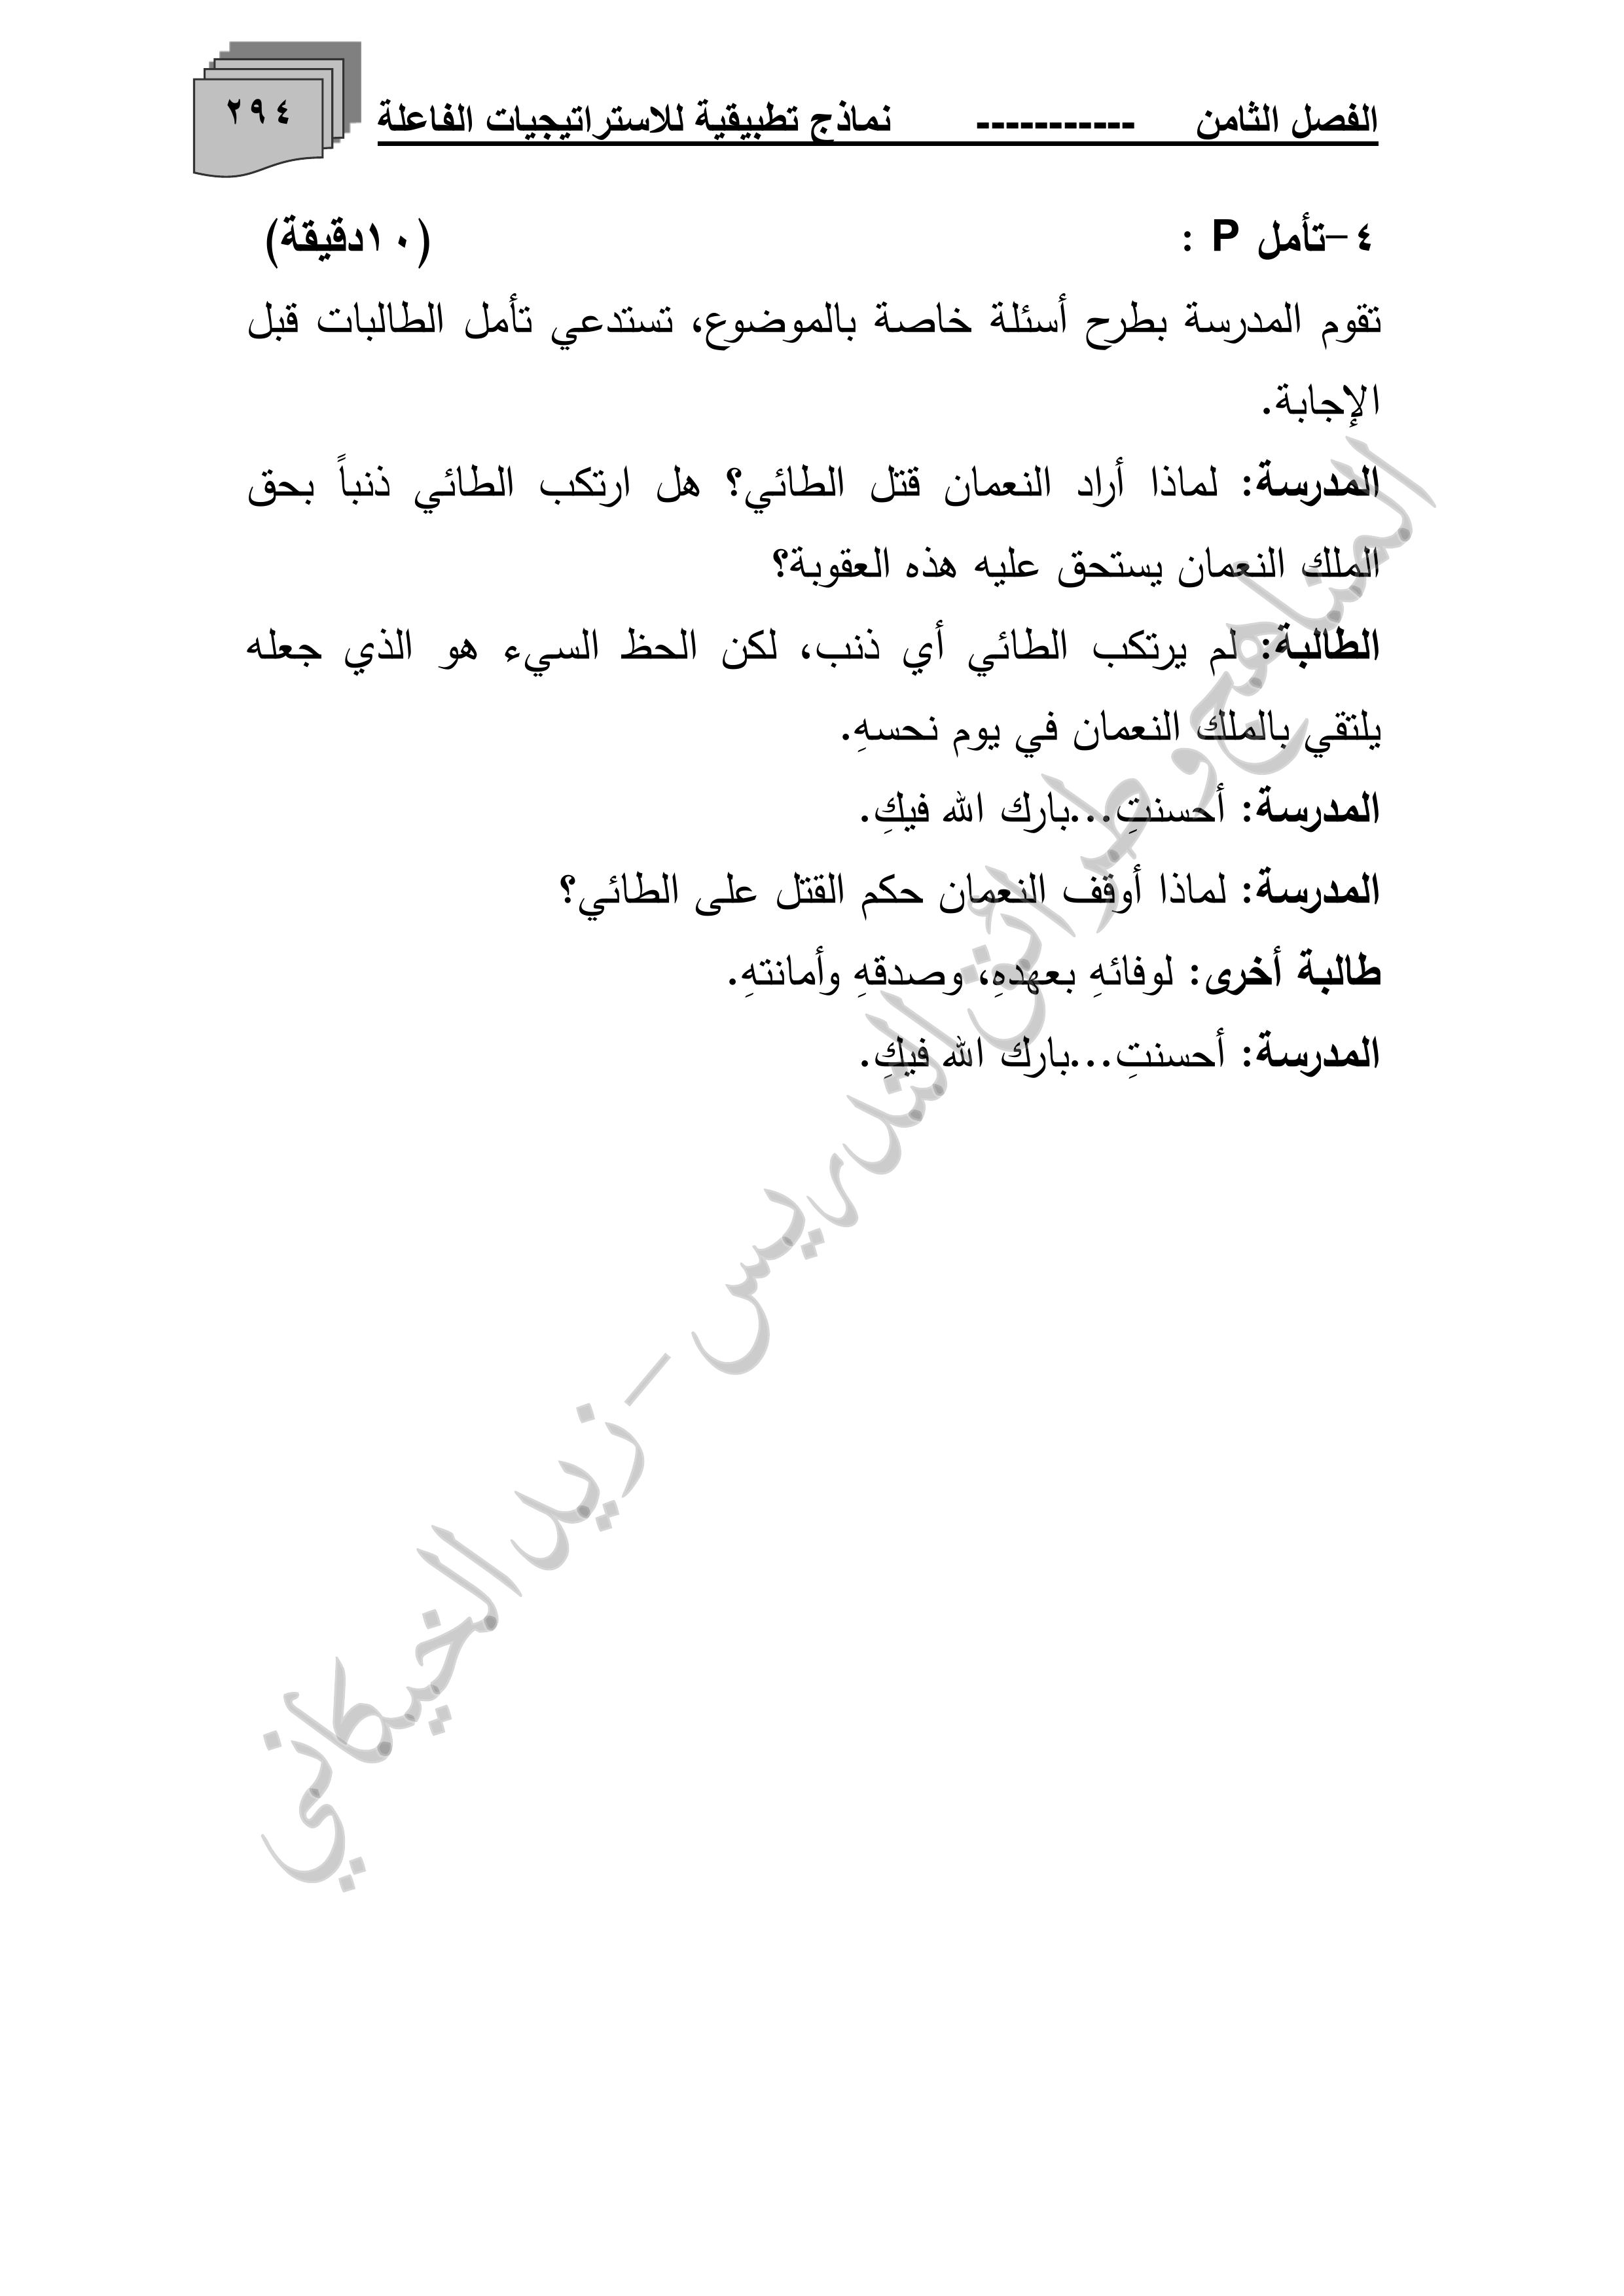 الفصل الثامن ----------- نماذج تطبيقية للاستراتيجيات الفاعلة ٢٩٤
٤-تأمل P : (١٠دقيقة)
تقوم المدرسة بطرح أسئلة خاصة بالموضوع، تستدعي تأمل الطالبات قبل
الإجابة.
المدرسة: لماذا أراد النعمان قتل الطائي؟ هل ارتكب الطائي ذنباً بحق
الملك النعمان يستحق عليه هذه العقوبة؟
الطالبة: لم يرتكب الطائي أي ذنب، لكن الحظ السيء هو الذي جعله
يلتقي بالملك النعمان في يوم نحسهِ.
المدرسة: أحسنتِ...بارك الله فيكِ.
المدرسة: لماذا أوقف النعمان حكم القتل على الطائي؟
طالبة أخرى: لوفائهِ بعهدهِ، وصدقهِ وأمانتهِ.
المدرسة: أحسنتِ...بارك الله فيكِ.
المناهج وطرائق التدريس - زيد الخيكاني